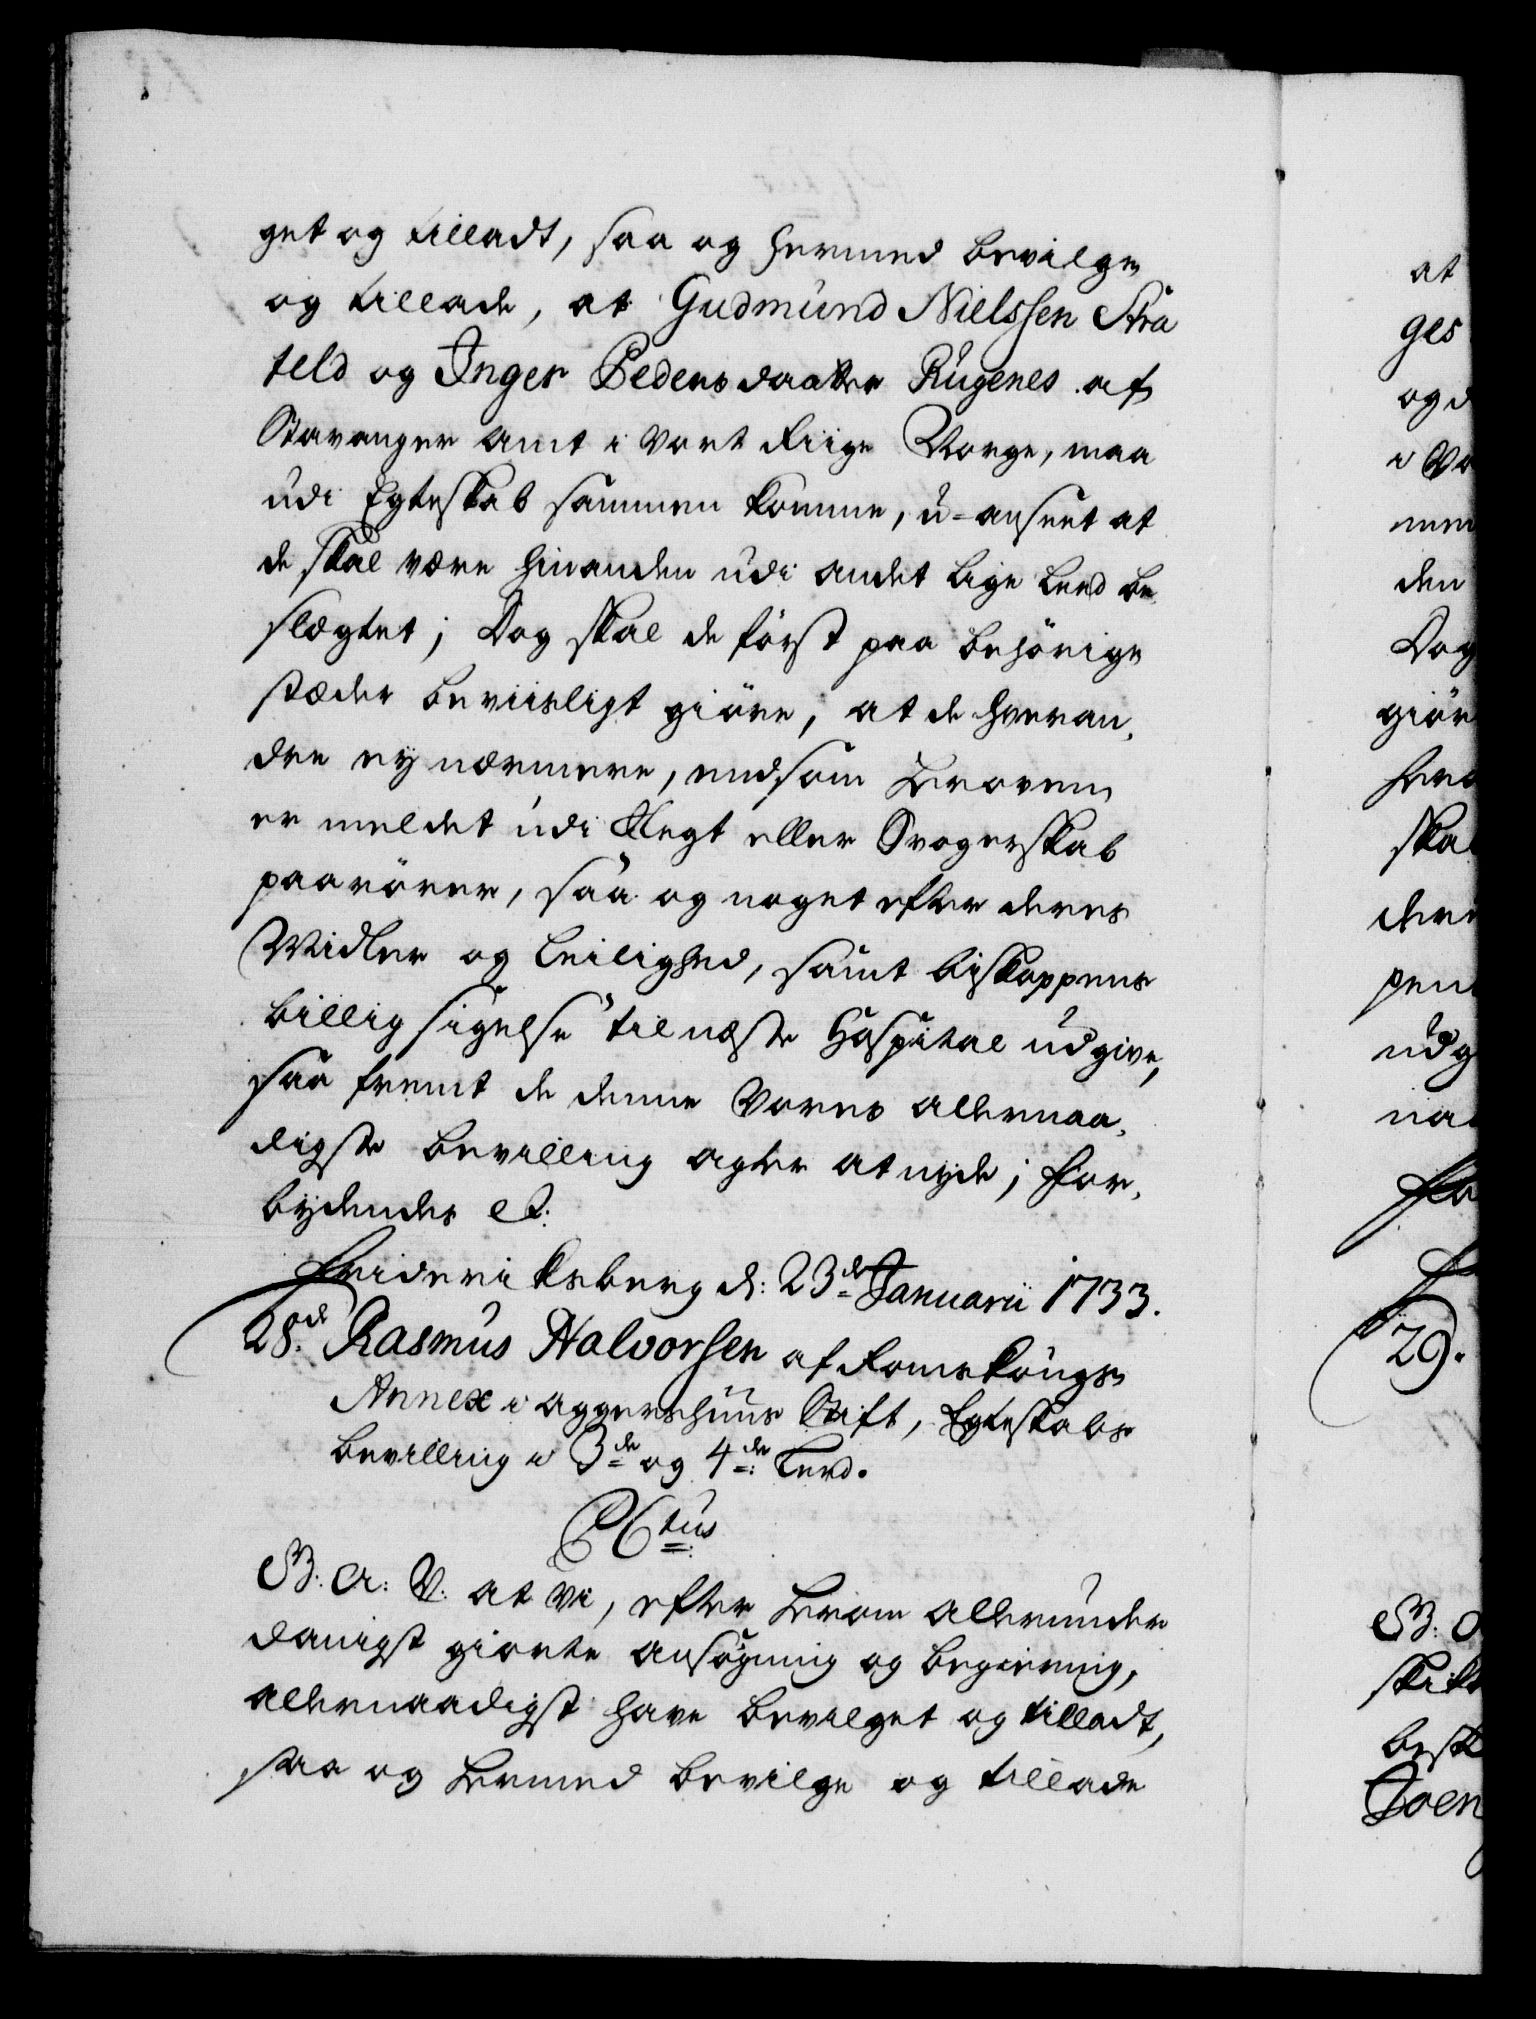 get og tilladt, saa og hermed bevilge
og tillade, at Gudmund Nielssen Stra
teld og Inger Pedersdaatter Rugenes af
Stavanger Amt i Vort Riige Norge, maa
udi Egteskab sammen komme, u-anseet at
de skal være hinanden udi andet lige Leed be-
slægtet; Dog skal de først paa behörige
stæder beviisligt giöre, at de hveran-
dre ey nærmere, end som heroven
er meldet udi Slegt eller Svogerskab
paarörer, saa og noget efter deres
Midler og Leilighed, samt biskoppens
billig sigelse til næste Hospital udgive,
saa fremt de denne Vores allernaa-
digste bevilling agter at nyde; For-
bydendes etc:
Friderichsberg d: 23de Januarii 1733.
28de Rasmus Halvorsen af
Annex i Aggershuus Stift, Egteskabs
bevilling i 3de og 4de Leed.
C6tus
G. A: V. at Vi, efter herom allerunder
danigst giorte ansögning og begiering,
allernaadigst have bevilget og tilladt,
saa og hermed bevilge og tillade
at
ges
og d
i Vo
den
Dog
giör
skal
dere
pen
udg
naa
29.
G. A
skik
besk
Joen